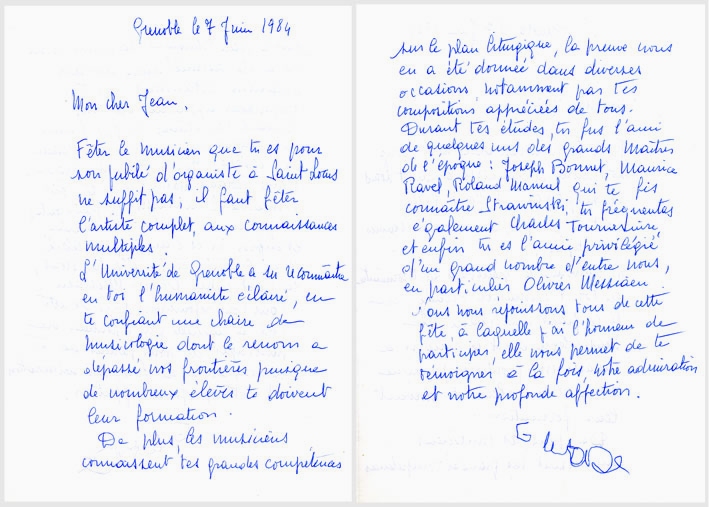 Grenoble le 7 Juin 1984
Mon cher Jean,
Fêter le musicien que tu es pour
son jubilé d'organiste à Saint Louis
ne suffit pas, il faut fêter
l'artiste complet, aux connaissances
multiples.
L'Université de Grenoble a su reconnaître
en toi l'humaniste éclairé, en
te confiant une chaire de
musicologie dont le renom a
dépassé nos frontières puisque
de nombreux élèves te doivent
leur formation.
De plus, les musiciens
connaissent tes grandes compétences
sur le plan liturgique, la preuve nous
en a été donnée dans diverses
occasions notamment par tes
compositions appréciées de tous.
Durant tes études, tu fus l'ami
de quelques uns des grands Maîtres
de l'époque : Joseph Bonnet, Maurice
Ravel, Roland Manuel qui te fis
connaître Strawinski, tu fréquentas
également Charles Tournemire,
et enfin tu es l'ami privilégié
d'un grand nombre d'entre nous,
en particulier Olivier Messiaen.
nous réjouissons tous de cette
fête, à laquelle j'ai l'honneur de
participer, elle nous permet de te
témoigner à la fois, notre admiration
et notre profonde affection.